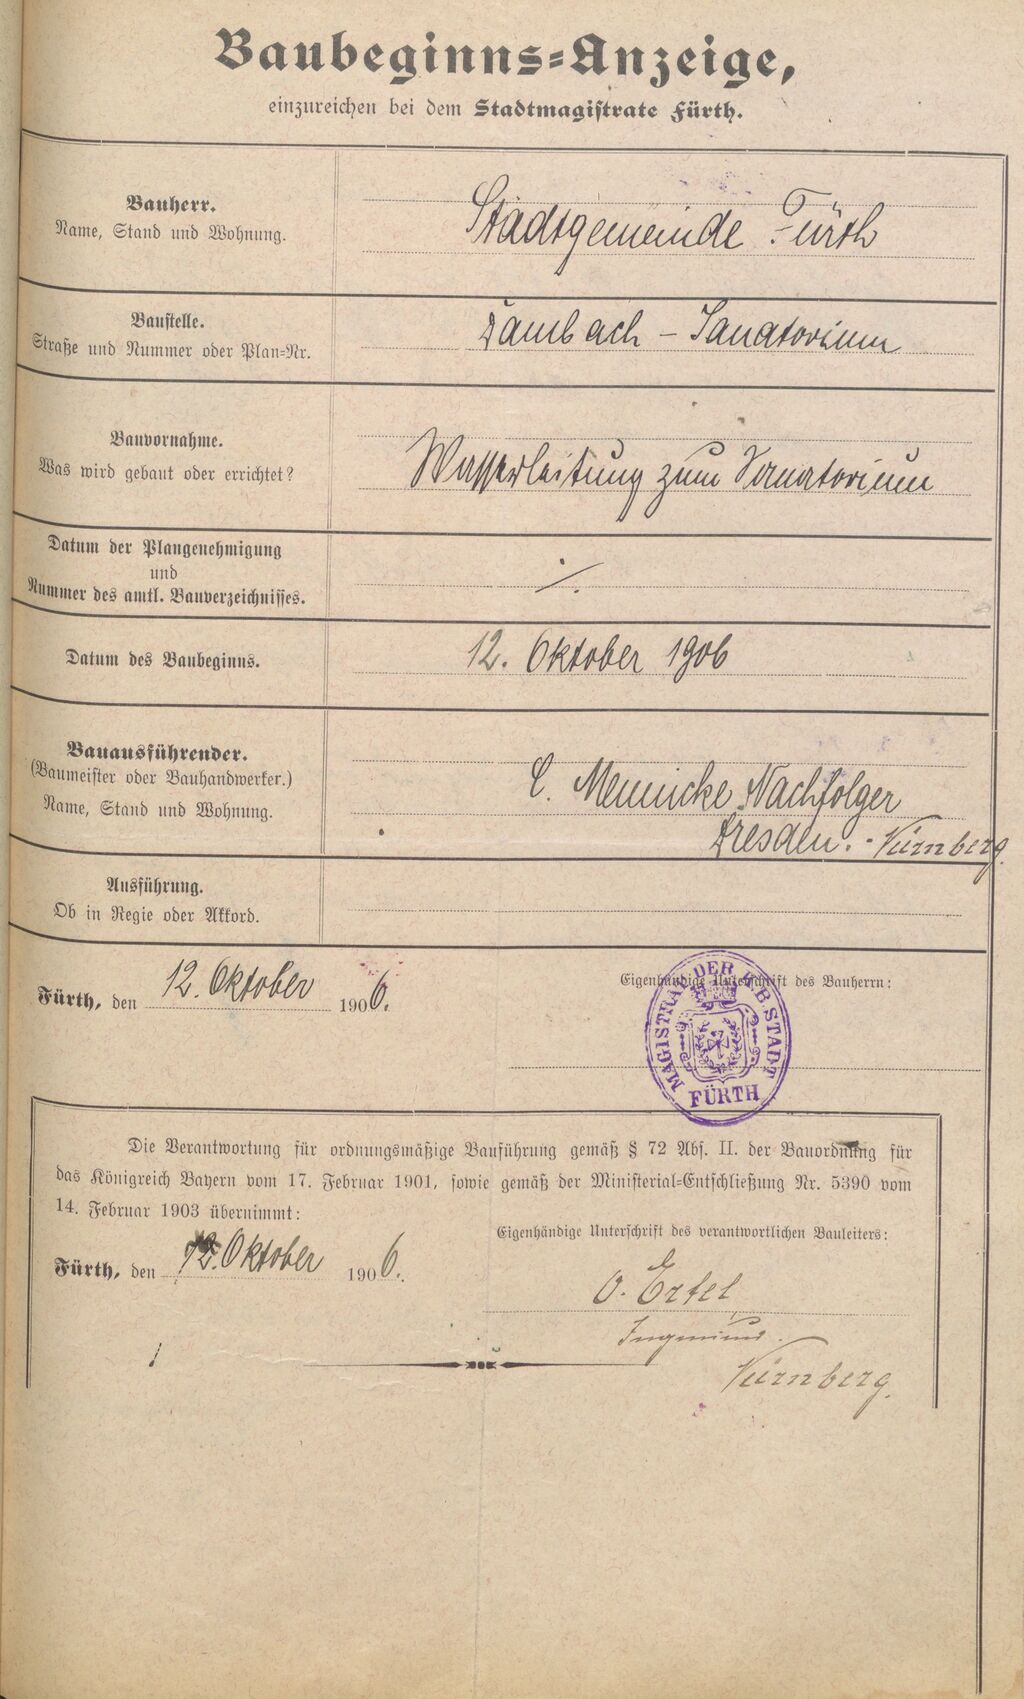 Baubeginns-Anzeige,
einzureichen bei dem Stadtmagistrate Fürth.
Bauherr.
Name, Stand und Wohnung.
Stadtgemeinde Fürth
Baustelle.
Straße und Nummer oder Plan-Nr.
Dambach – Sanatorium
Bauvornahme.
Was wird gebaut oder errichtet?
Wasserleitung zum Sanatorium
Datum der Plangenehmigung
und
Nummer des amtl. Bauverzeichnisses.
./.
Datum des Baubeginns.
12. Oktober 1906
Bauausführender.
(Baumeister oder Bauhandwerker.)
Name, Stand und Wohnung.
C. Mennicke Nachfolger
Dresden. - Nürnberg.
Ausführung.
Ob in Regie oder Akkord.
Fürth, den 12. Oktober 1906.
Eigenhändige Unterschrift des Bauherrn:
MAGISTRAT DER K. B. STADT FÜRTH
Die Verantwortung für ordnungsmäßige Bauführung gemäß § 72 Abs. II. der Bauordnung für
das Königreich Bayern vom 17. Februar 1901, sowie gemäß der Ministerial-Entschließung Nr. 5390 vom
14. Februar 1903 übernimmt:
Eigenhändige Unterschrift des verantwortlichen Bauleiters:
Fürth, den 12. Oktober 1906.
O. Ertel
Ingenieur.
Nürnberg.